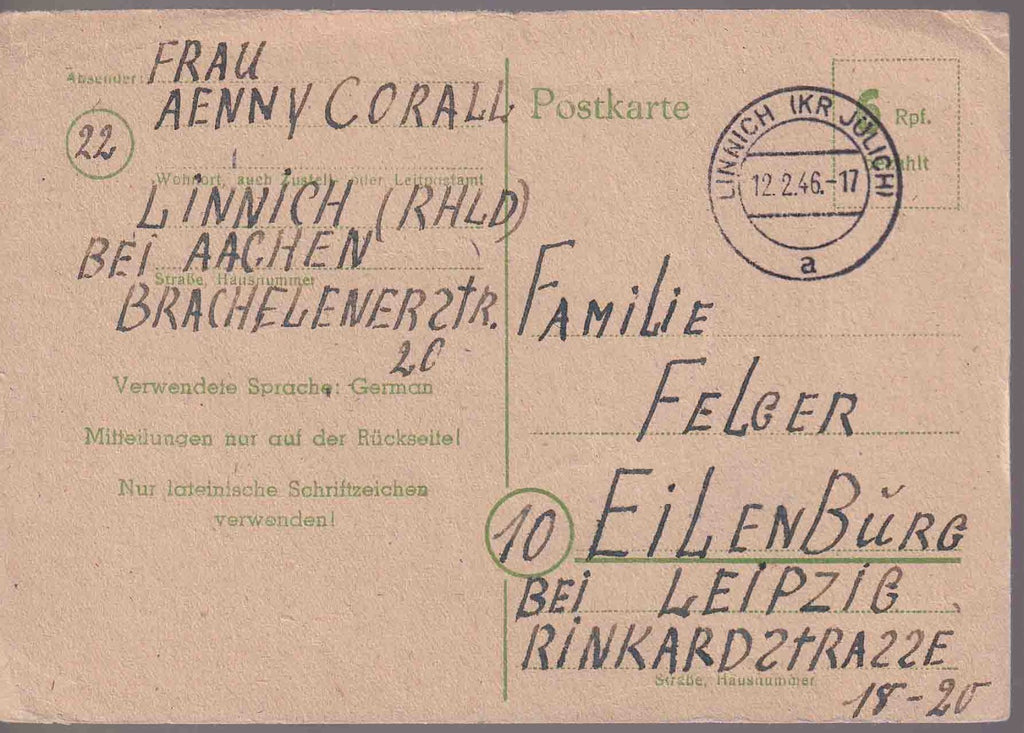 Absender: FRAU
AENNY CORALL
22
Wohnort, auch Zustell- oder Leitpostamt
LINNICH (RHLD)
BEI AACHEN
Straße, Hausnummer
BRACHELENERSTR.
20
Verwendete Sprache: German
Mitteilungen nur auf der Rückseite!
Nur lateinische Schriftzeichen
verwenden!
Postkarte
6 Rpf.
LINNICH (KR JÜLICH)
12.2.46.-17
a
FAMILIE
FELGER
10 EILENBŬRG
BEI LEIPZIG
RINKARDSTRASSE
Straße, Hausnummer
18-20